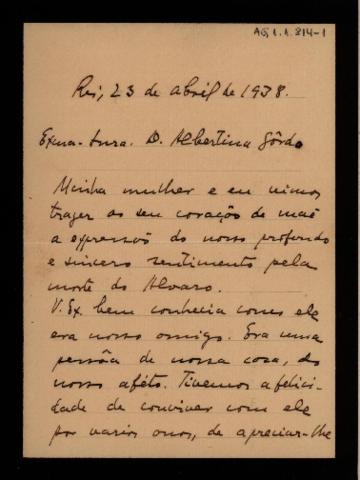 AG 1.1.814-1
Rei, 23 de abril de 1938.
Exma. Snra. D. Albertina Gôrdo
Minha mulher e eu vimos
trazer ao seu coração de mãe
a expressão do nosso profundo
e sincero sentimento pela
morte do Alvaro.
V. Ex. bem conhecia como ele
era nosso amigo. Era uma
pessôa de nossa casa, do
nosso afeto. Tivemos a felici-
dade de conviver com ele
por varios anos, de apreciar-lhe